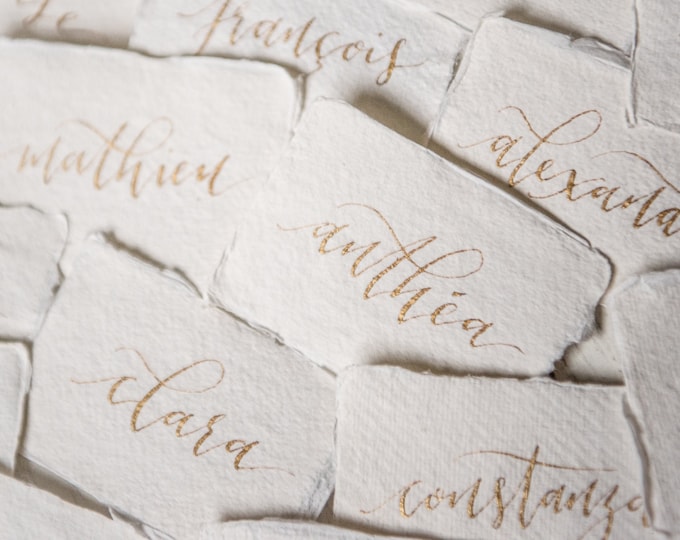 françois
mathieu
alexand
anthéa
clara
constanza